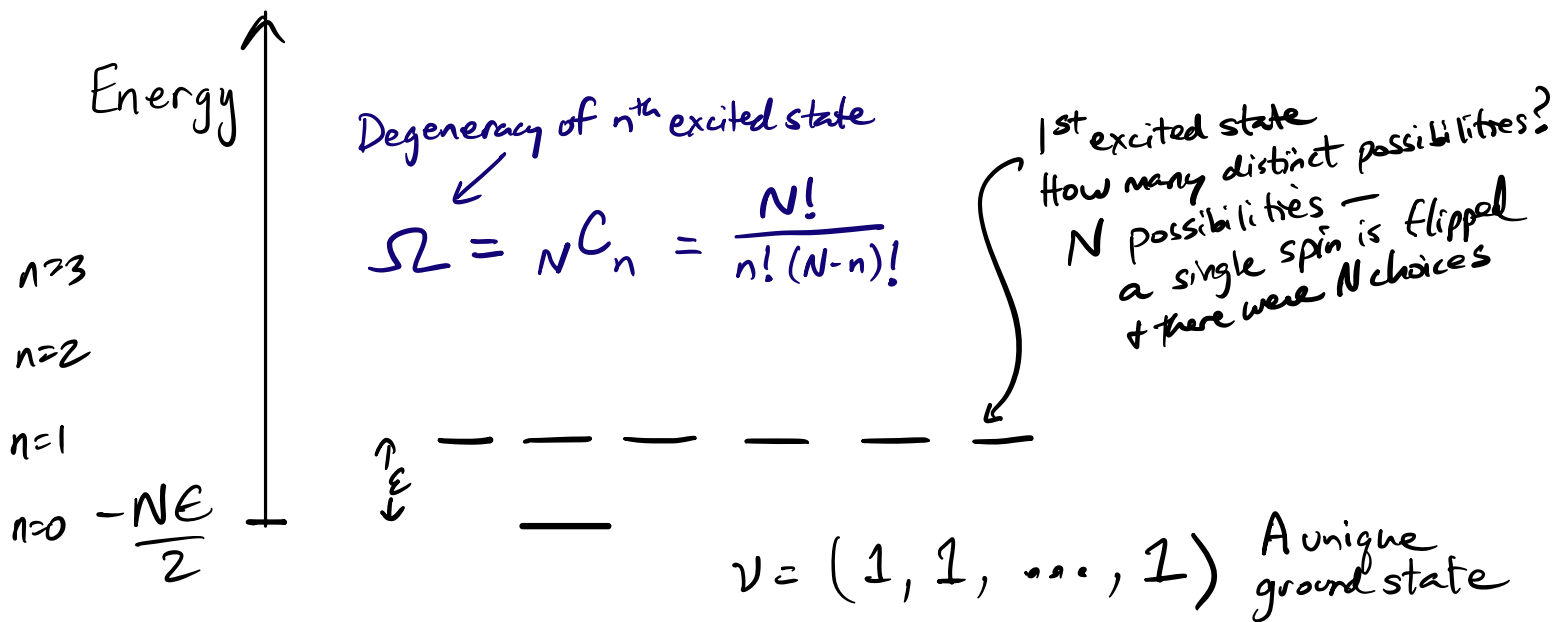 Energy
Degeneracy of nth excited state
Ω = NCn = N! / n! (N-n)!
1st excited state
How many distinct possibilities?
N possibilities —
a single spin is flipped
+ there were N choices
n=3
n=2
n=1
ε
n=0 -Nε/2
ν = (1, 1, ..., 1)
A unique
ground state